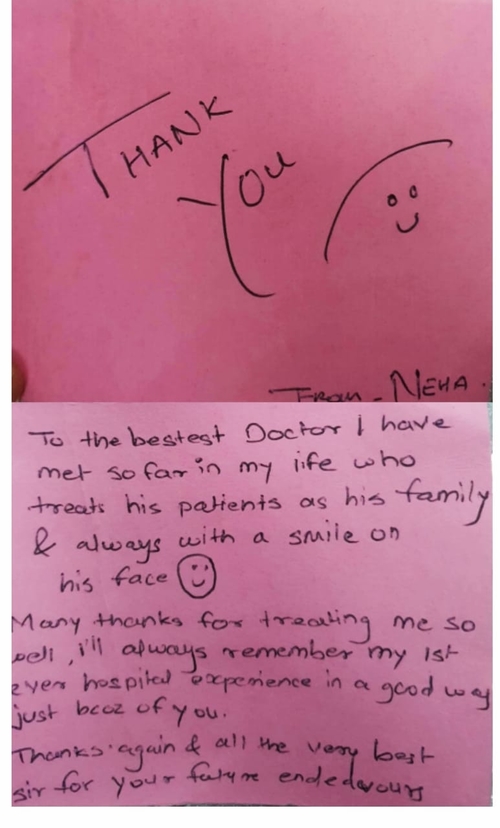 THANK
You
From - NEHA.
To the bestest Doctor I have
met so far in my life who
treats his patients as his family
& always with a smile on
his face
Many thanks for treating me so
well, i'll always remember my 1st
ever hospital experience in a good way
just bcoz of you.
Thanks again & all the very best
sir for your future endedavours